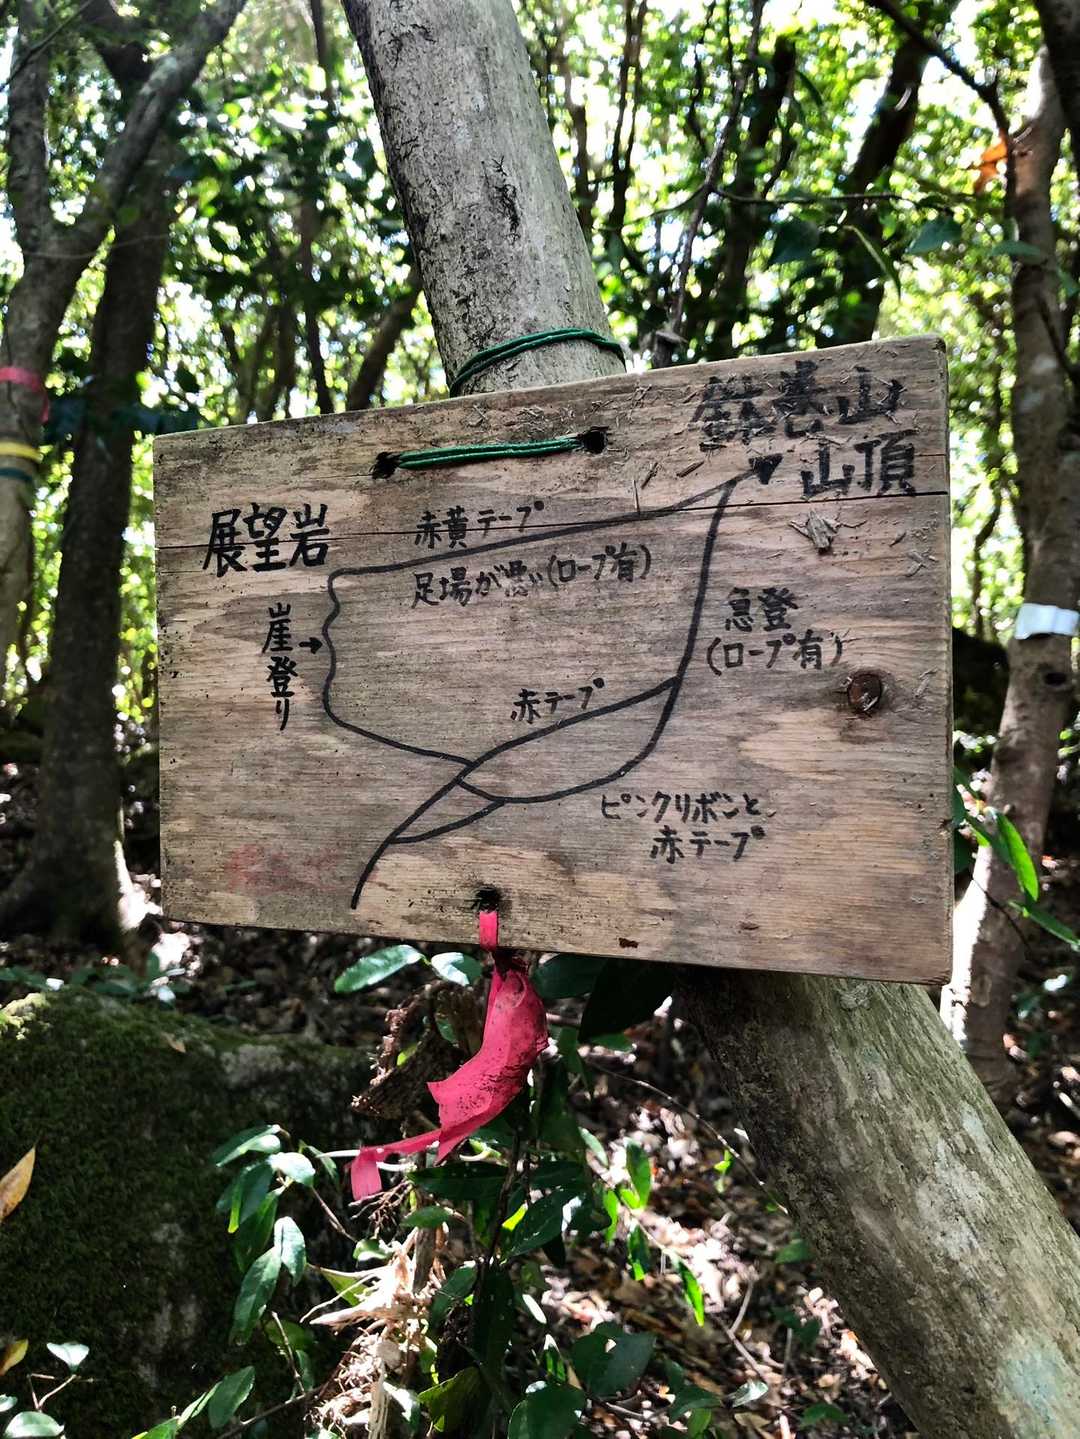 鉢巻山
山頂
展望岩
赤黄テープ
足場が悪い(ロープ有)
崖登り→
急登
(ロープ有)
赤テープ
ピンクリボンと
赤テープ